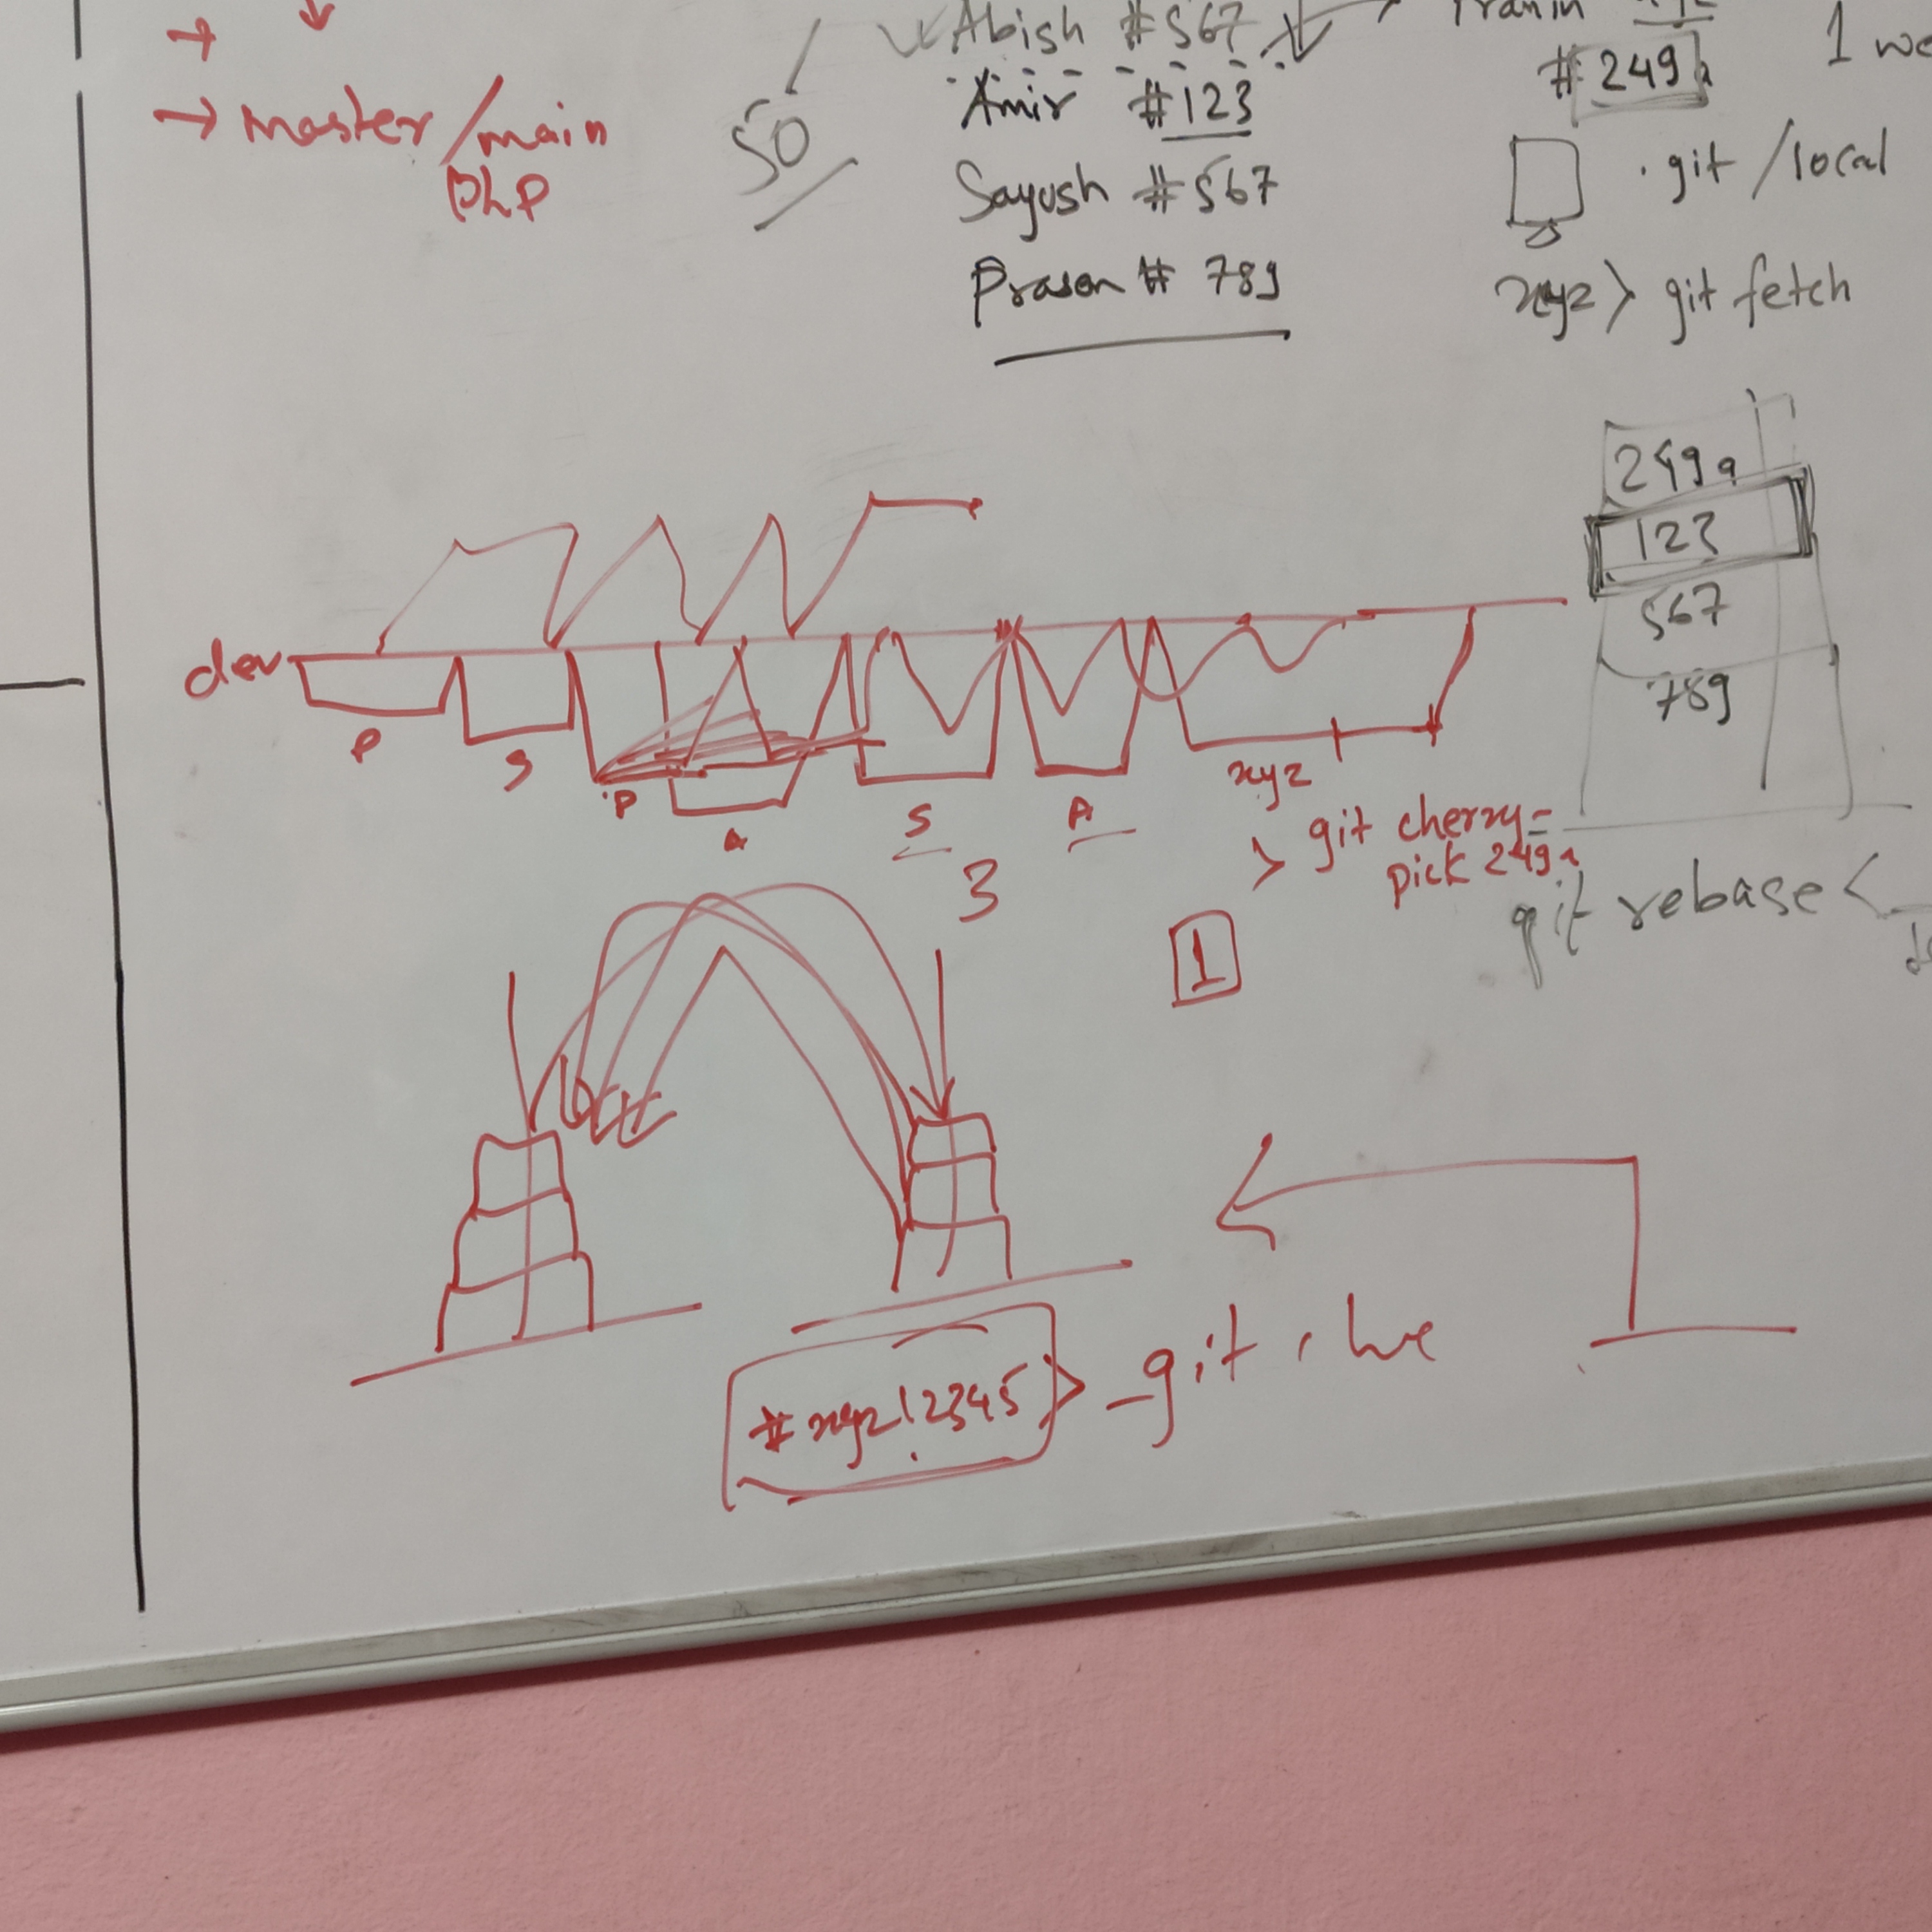 →
→ master/main
Abish #567
Amir #123
Sayush #567
Prasen # 789
50
#249a
1 we
.git/local
xyz> git fetch
249a
123
567
789
dev
P
S
P
A
S
A
xyz
> git cherry-
pick 249a
3
1
git rebase <
#xyz12345 > git